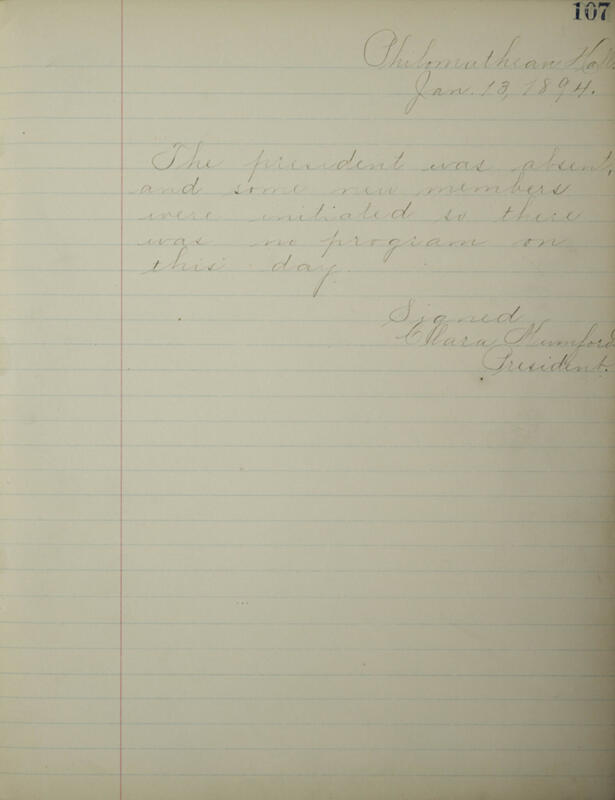 107
Philomathean Hall.
Jan. 13, 1894.
The president was absent,
and some new members
were initiated so there
was no program on
this day.
Signed
Clara Mumford
President.